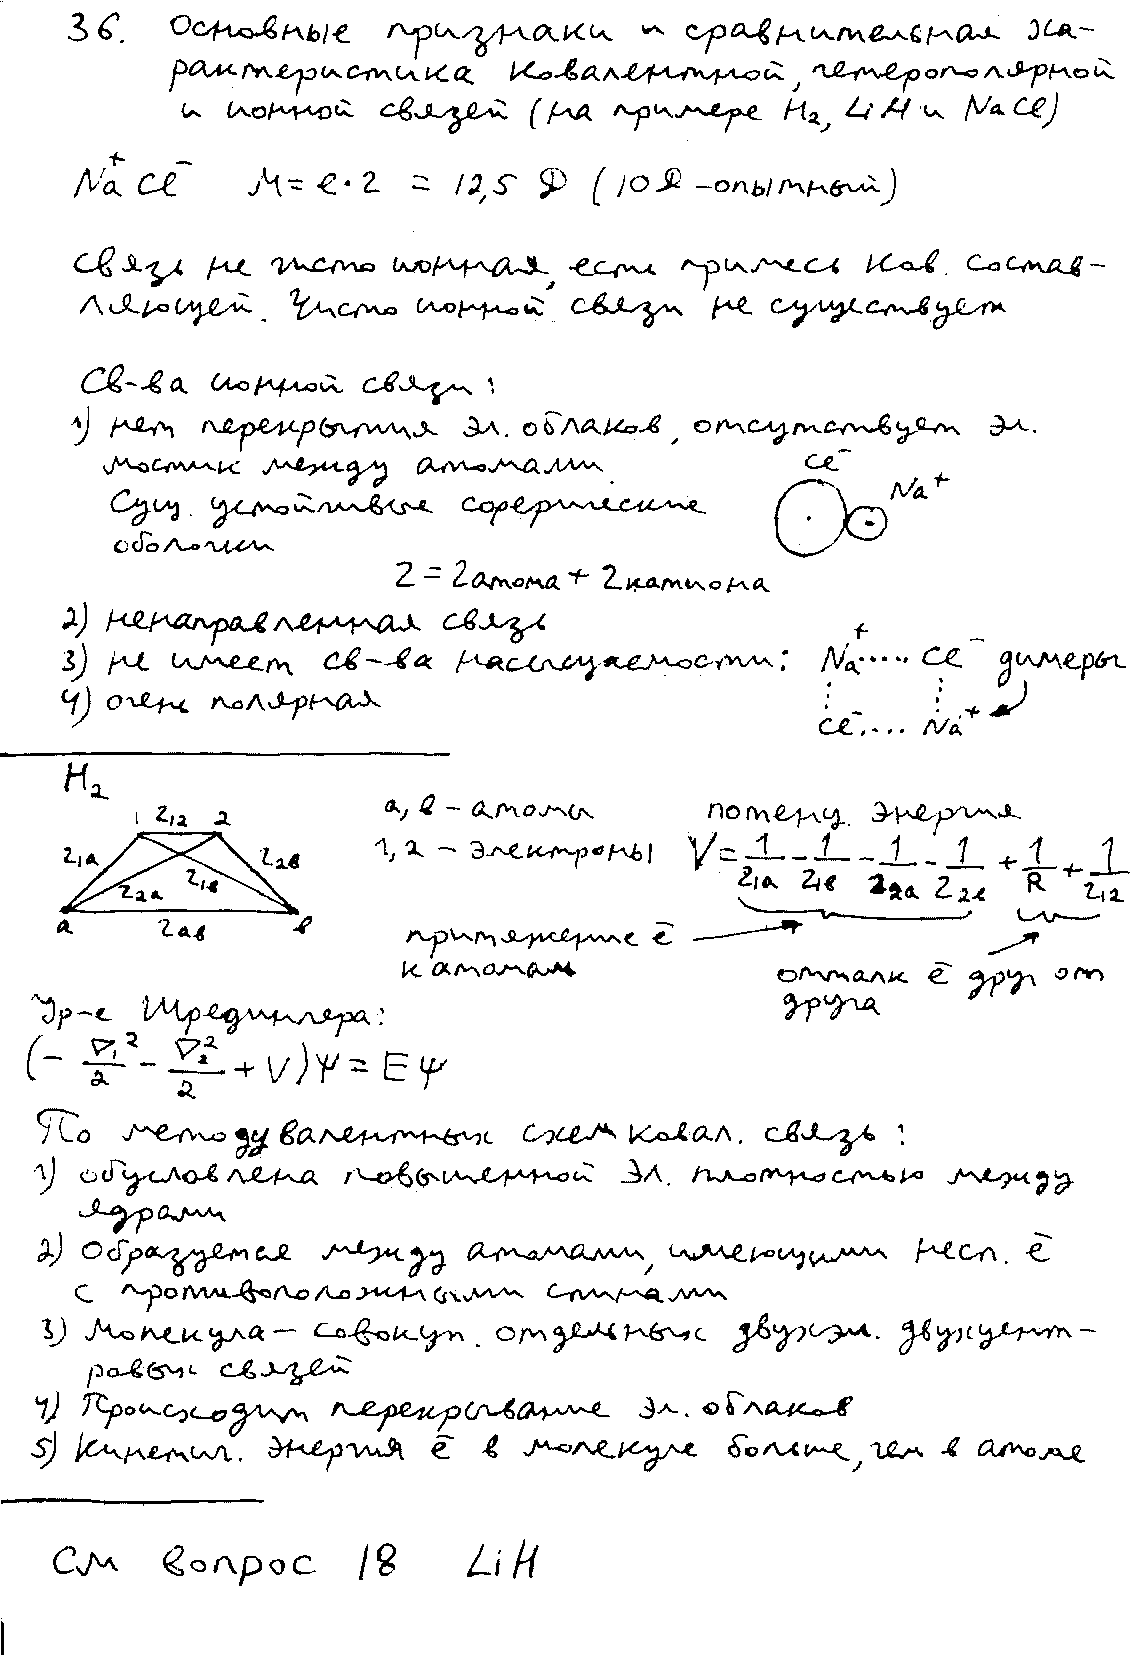 36. Основные признаки и сравнительная ха-
рактеристика ковалентной, гетерополярной
и ионной связей (на примере H₂, LiH и NaCl)
Na⁺Cl⁻ M = e·r = 12,5 D (10D - опытный)
связь не чисто ионная, есть примесь ков. состав-
ляющей. Чисто ионной связи не существует
Св-ва ионной связи:
1) нет перекрытия эл. облаков, отсутствует эл.
мостик между атомами
Сущ. устойчивые сферические
оболочки
Cl⁻ Na⁺
r = r атома + r катиона
2) ненаправленная связь
3) не имеет св-ва насыщаемости: Na⁺.....Cl⁻ димеры
4) очень полярная
Cl⁻.... Na⁺
H₂
1 r₁₂ 2
r₁ₐ r₂ₐ r₁в r₂в
a rₐв в
a, в - атомы
1, 2 - электроны
потенц. энергия
V = 1/r₁ₐ - 1/r₁в - 1/r₂ₐ - 1/r₂в + 1/R + 1/r₁₂
притяжение ē
к атомам
отталк ē друг от
друга
Ур-е Шредингера:
(- ∇₁²/2 - ∇₂²/2 + V)Ψ = EΨ
По методу валентных схем ковал. связь:
1) обусловлена повышенной эл. плотностью между
ядрами
2) Образуется между атомами, имеющими несп. ē
с противоположными спинами
3) Молекула - совокуп. отдельных двухэл. двухцент-
ровых связей
4) Происходит перекрывание эл. облаков
5) Кинетич. энергия ē в молекуле больше, чем в атоме
См вопрос 18 LiH